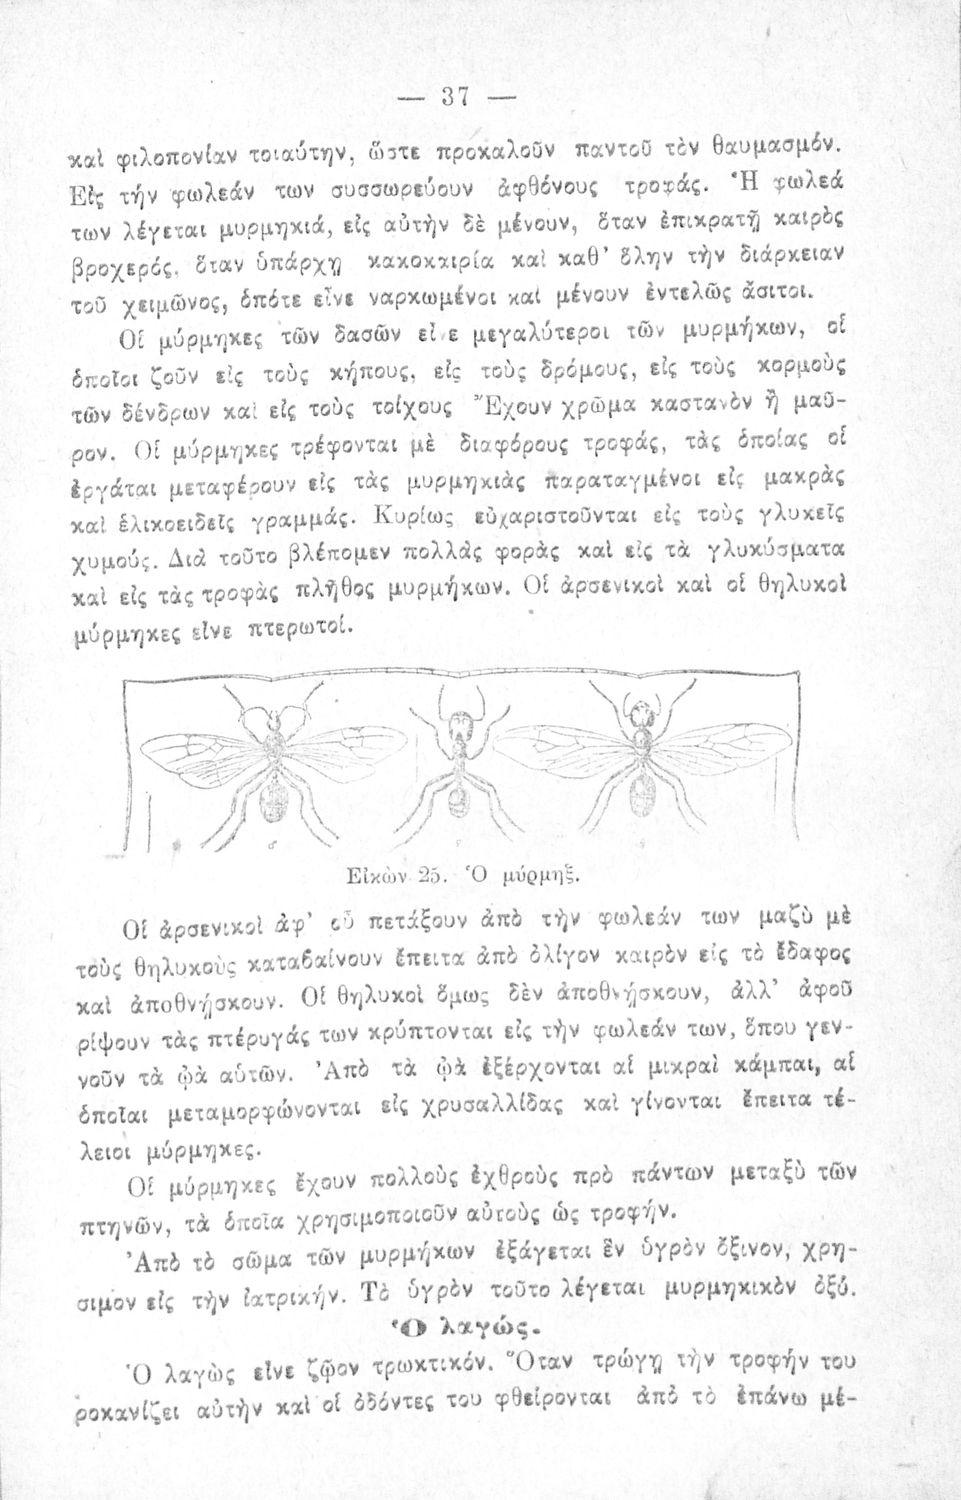 — 37 —
καὶ φιλοπονίαν τοιαύτην, ὥστε προκαλοῦν παντοῦ τὸν θαυμασμόν.
Εἰς τήν φωλεάν των συσσωρεύουν ἀφθόνους τροφάς. Ἡ φωλεά
των λέγεται μυρμηκιά, εἰς αὐτὴν δὲ μένουν, ὅταν ἐπικρατῇ καιρὸς
βροχερός, ὅταν ὑπάρχῃ κακοκαιρία καὶ καθ’ ὅλην τὴν διάρκειαν
τοῦ χειμῶνος, ὁπότε εἶνε ναρκωμένοι καὶ μένουν ἐντελῶς ἄσιτοι.
Οἱ μύρμηκες τῶν δασῶν εἶνε μεγαλύτεροι τῶν μυρμήκων, οἱ
ὁποῖοι ζοῦν εἰς τοὺς κήπους, εἰς τοὺς δρόμους, εἰς τοὺς κορμοὺς
τῶν δένδρων καὶ εἰς τοὺς τοίχους Ἔχουν χρῶμα καστανὸν ἢ μαῦ-
ρον. Οἱ μύρμηκες τρέφονται μὲ διαφόρους τροφάς, τὰς ὁποίας οἱ
ἐργάται μεταφέρουν εἰς τὰς μυρμηκιὰς παραταγμένοι εἰς μακρὰς
καὶ ἑλικοειδεῖς γραμμάς. Κυρίως εὐχαριστοῦνται εἰς τοὺς γλυκεῖς
χυμούς. Διὰ τοῦτο βλέπομεν πολλὰς φορὰς καὶ εἰς τὰ γλυκύσματα
καὶ εἰς τὰς τροφὰς πλῆθος μυρμήκων. Οἱ ἀρσενικοὶ καὶ οἱ θηλυκοὶ
μύρμηκες εἶνε πτερωτοί.
Εἰκὼν 25. Ὁ μύρμηξ.
Οἱ ἀρσενικοὶ ἀφ’ οὗ πετάξουν ἀπὸ τὴν φωλεάν των μαζὺ μὲ
τοὺς θηλυκοὺς καταβαίνουν ἔπειτα ἀπὸ ὀλίγον καιρὸν εἰς τὸ ἔδαφος
καὶ ἀποθνήσκουν. Οἱ θηλυκοὶ ὅμως δὲν ἀποθνήσκουν, ἀλλ’ ἀφοῦ
ρίψουν τὰς πτέρυγάς των κρύπτονται εἰς τὴν φωλεάν των, ὅπου γεν-
νοῦν τὰ ᾠὰ αὑτῶν. Ἀπὸ τὰ ᾠὰ ἐξέρχονται αἱ μικραὶ κάμπαι, αἱ
ὁποῖαι μεταμορφώνονται εἰς χρυσαλλίδας καὶ γίνονται ἔπειτα τέ-
λειοι μύρμηκες.
Οἱ μύρμηκες ἔχουν πολλοὺς ἐχθροὺς πρὸ πάντων μεταξὺ τῶν
πτηνῶν, τὰ ὁποῖα χρησιμοποιοῦν αὐτοὺς ὡς τροφήν.
Ἀπὸ τὸ σῶμα τῶν μυρμήκων ἐξάγεται ἓν ὑγρὸν ὄξινον, χρη-
σιμον εἰς τὴν ἰατρικήν. Τὸ ὑγρὸν τοῦτο λέγεται μυρμηκικὸν ὀξύ.
Ὁ λαγώς.
Ὁ λαγὼς εἶνε ζῷον τρωκτικόν. Ὅταν τρώγῃ τὴν τροφήν του
ροκανίζει αὐτὴν καὶ οἱ ὀδόντες του φθείρονται ἀπὸ τὸ ἐπάνω μέ-